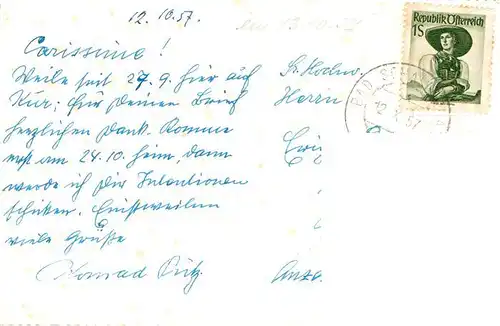 12.10.57.
Carissime!
Weile seit 27.9. hier auf
Kur; für Deinen Brief
herzlichen Dank. Komme
erst am 24.10. heim, dann
werde ich Dir Intentionen
schicken. Einstweilen
viele Grüße
Konrad
Republik Österreich
1S
BAD
12. X. 57
Sr. Hochw.
Herrn